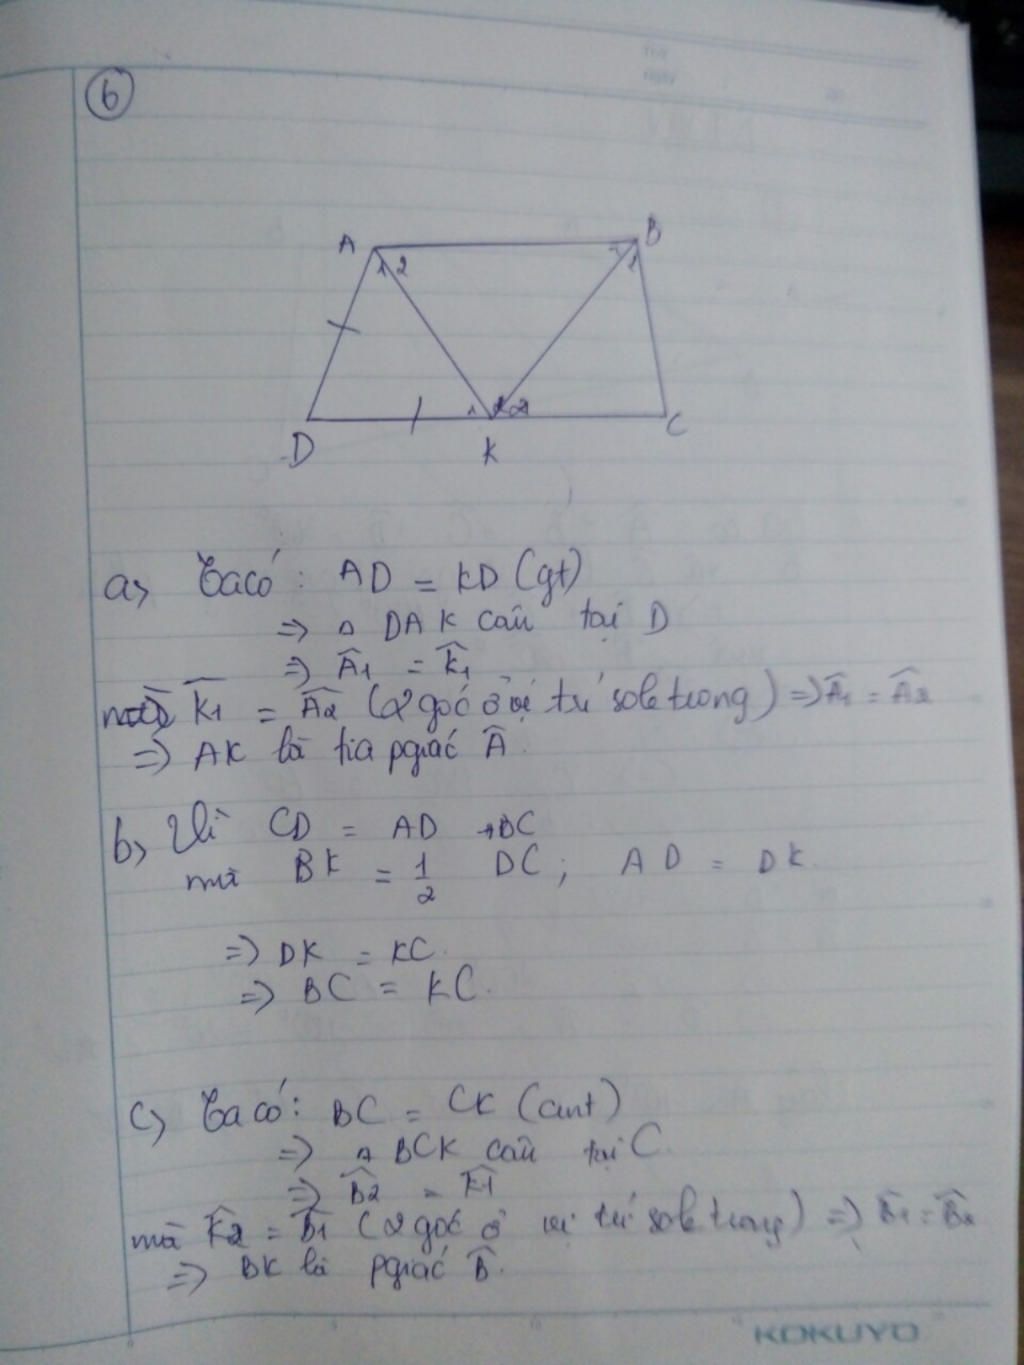 6
A
B
1 2
2 1
1 2
D
K
C
a, Ta có: AD = KD (gt)
=> △ DAK cân tại D
=> Â1 = K̂1
K̂1 = Â2 (2 góc ở vị trí sole trong) => Â1 = Â2
=> AK là tia pgiác Â.
b, Vì CD = AD + BC
mà BK = 1/2 DC; AD = DK.
=> DK = KC.
=> BC = KC.
c, Ta có: BC = CK (cmt)
=> △ BCK cân tại C.
=> B̂2 = K̂1
mà K̂2 = B̂1 (2 góc ở vị trí sole trong) => B̂1 = B̂2
=> BK là pgiác B̂.
KOKUYO